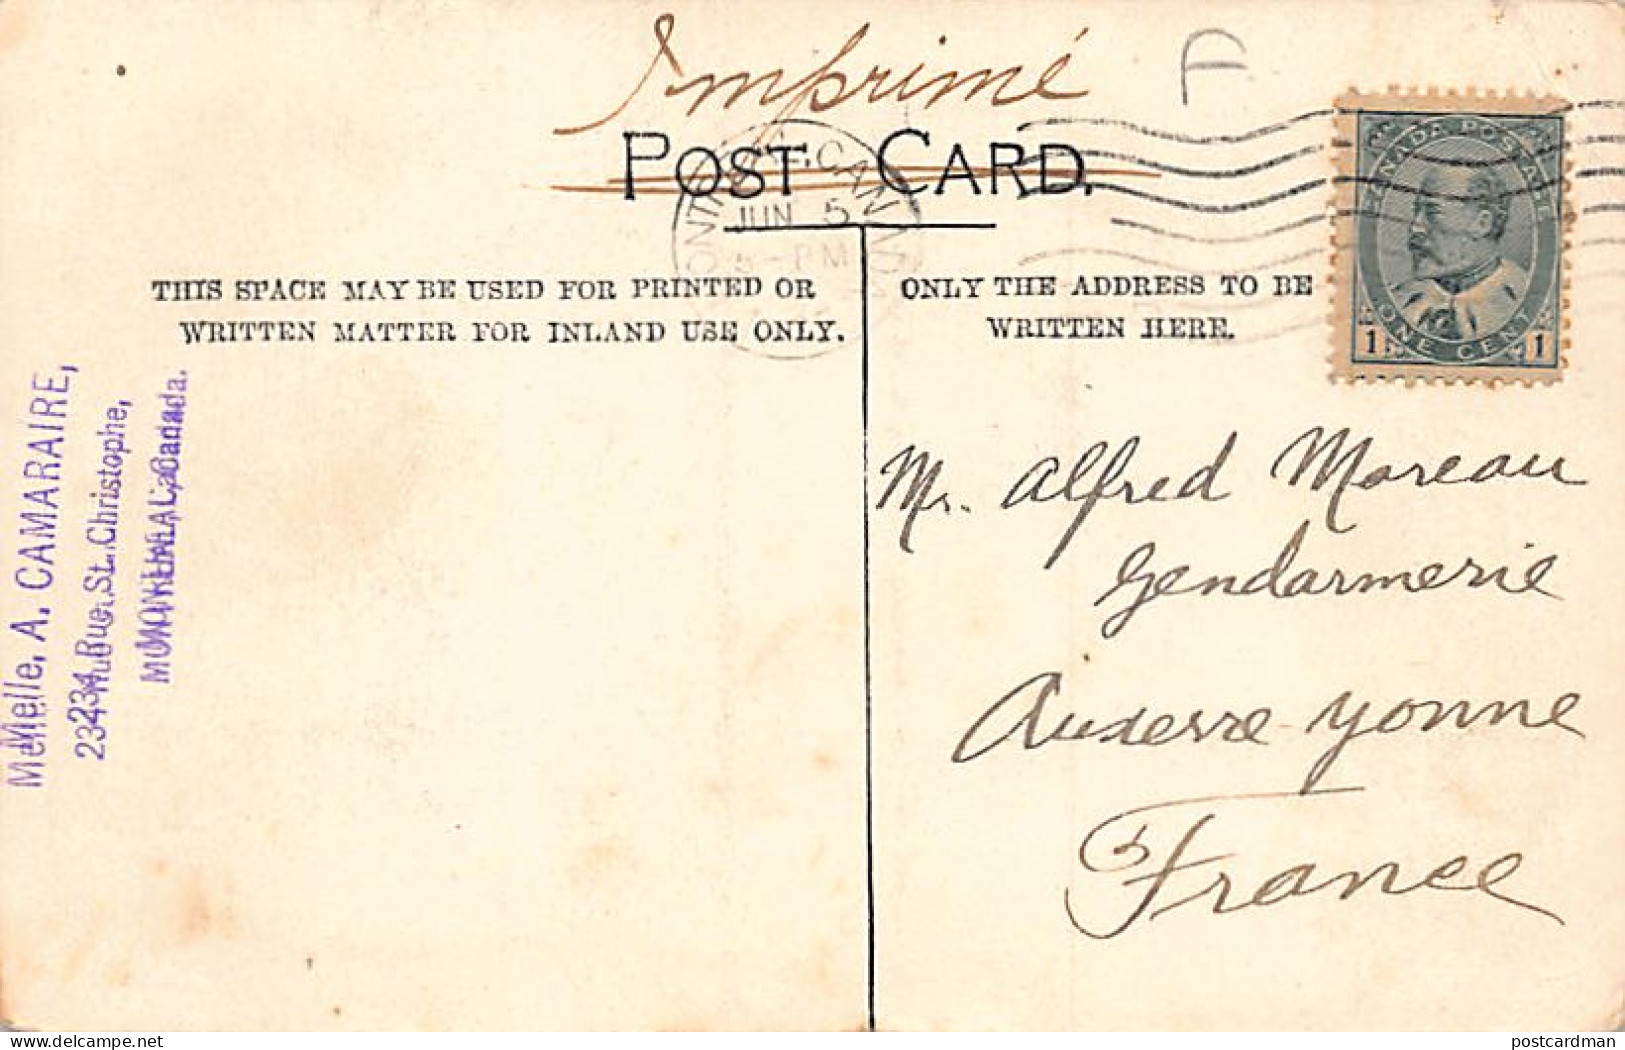 Imprimé
F
POST CARD.
CANADA POSTAGE
JUN 5
PM
ONE CENT
1 1
THIS SPACE MAY BE USED FOR PRINTED OR
WRITTEN MATTER FOR INLAND USE ONLY.
ONLY THE ADDRESS TO BE
WRITTEN HERE.
Melle. A. CAMARAIRE,
234 Rue St. Christophe,
MONTREAL, Canada.
Mr. Alfred Moreau
Gendarmerie
Auxerre Yonne
France
delcampe.net
postcardman